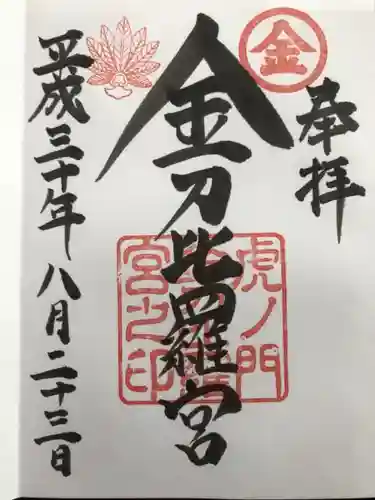 奉拝
金
金刀比羅宮
虎ノ門
金刀比羅
宮之印
平成三十年八月二十三日